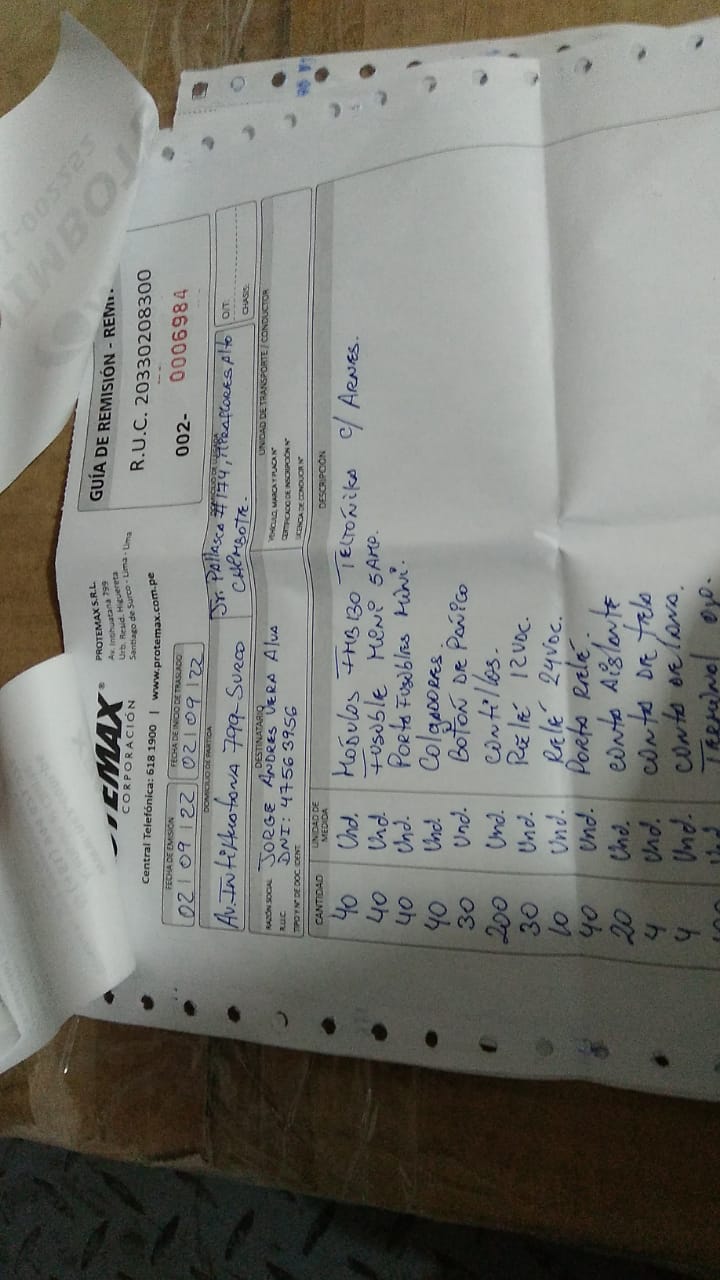 PROTEMAX S.R.L.
Av. Intihuatana 799
Urb. Resid. Higuereta
Santiago de Surco - Lima - Lima
TEMAX®
CORPORACIÓN
Central Telefónica: 618 1900 | www.protemax.com.pe
GUÍA DE REMISIÓN - REMI
R.U.C. 20330208300
002- 0006984
FECHA DE EMISIÓN
02/09/22
FECHA DE INICIO DE TRASLADO
02/09/22
DOMICILIO DE PARTIDA
Av. Intihuatana 799-Surco
DOMICILIO DE LLEGADA
Jr. Pallasca #174, Miraflores Alto
CHIMBOTE.
O/T:
CHASIS:
DESTINATARIO
RAZÓN SOCIAL JORGE ANDRES VERA
R.U.C. DNI: 47563956
TIPO Y N° DE DOC. IDENT.
UNIDAD DE TRANSPORTE / CONDUCTOR
VEHÍCULO, MARCA Y PLACA N°
CERTIFICADO DE INSCRIPCIÓN N°
LICENCIA DE CONDUCIR N°
CANTIDAD UNIDAD DE MEDIDA DESCRIPCIÓN
40 Und. MÓDULOS FMB130 TELTONIKA C/ ARNES.
40 Und FUSIBLE MINI 5 AMP.
40 Und. PORTA FUSIBLES MINI.
40 Und. COLGADORES.
30 Und. BOTÓN DE PÁNICO
200 Und. CINTILLOS.
30 Und. RELÉ 12VDC.
10 Und. RELÉ 24VDC.
40 Und. PORTA RELÉ.
20 Und. CINTA AISLANTE
4 Und. CINTA DE TELA
4 Und. CINTA DE
100 Und TERMINAL OJO.